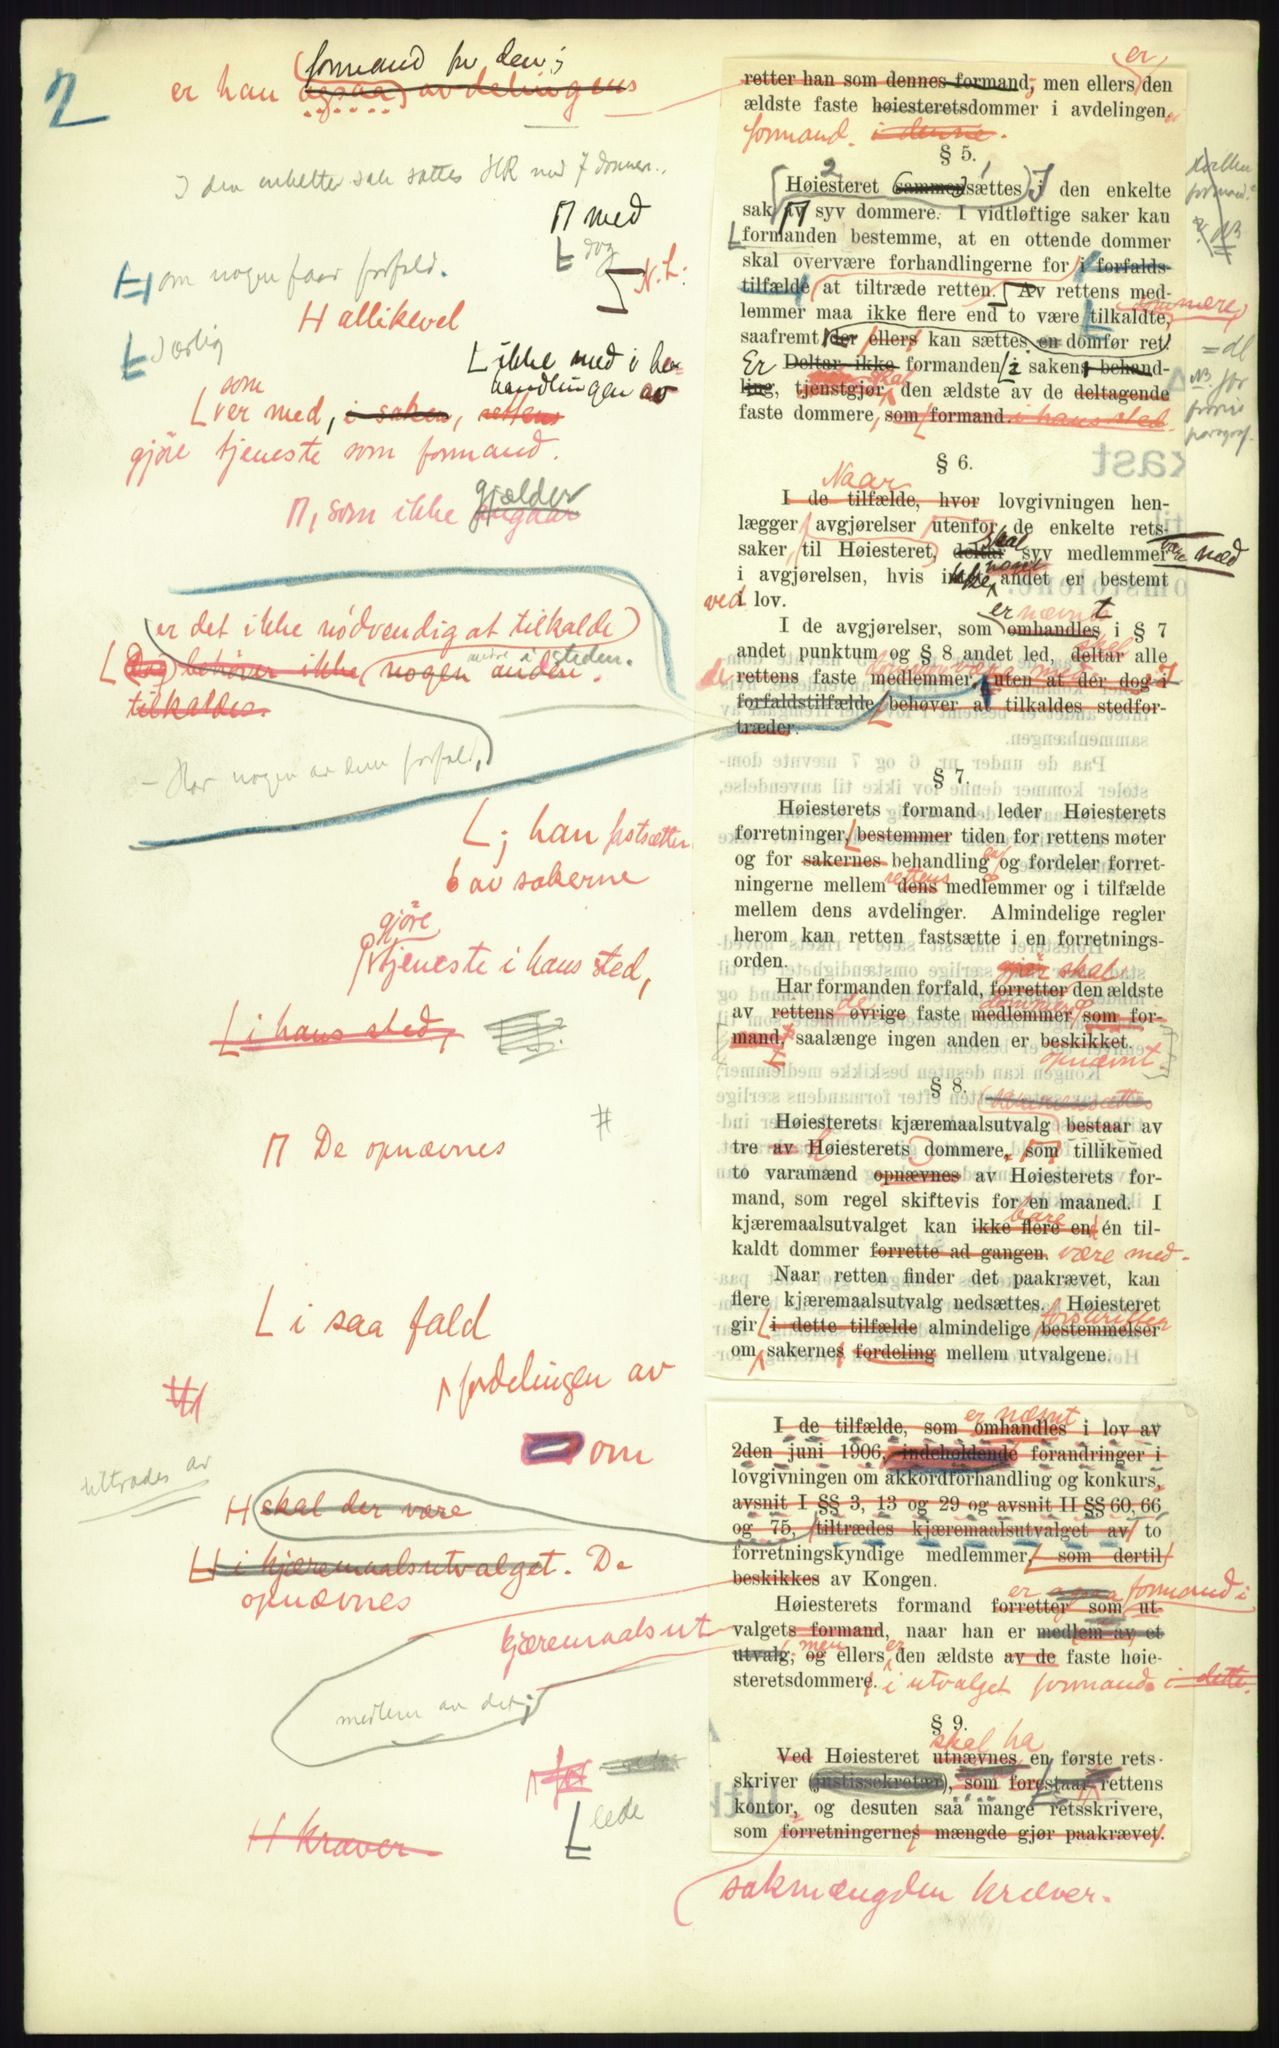 2
formand for den;
er han ogsaa avdelingens
I den enkelte sak sættes HR med 7 dommere.
med
dog
om nogen faar forfald.
N. L:
allikevel
særlig
ikke med i be-
handlingen av
som
ver med, i saken, rettens
gjøre tjeneste som formand.
gjælder
, som ikke angaar
er det ikke nødvendig at tilkalde
Dog behøver ikke nogen anden.
andre i steden.
tilkaldes.
– Har nogen av dem forfald,
; han fastsætter
av sakerne
gjøre
tjeneste i hans sted,
i hans sted,
#
De opnævnes
i saa fald
fordelingen av
om
tiltrædes av
skal der være
i kjæremaalsutvalget. De
opnævnes
kjæremaalsut
medlem av det;
for
lede
kræver
er
retter han som dennes formand, men ellers den
ældste faste høiesteretsdommer i avdelingen
formand. i denne.
§ 5.
2 1
Høiesteret (sammen)sættes i den enkelte
sak av syv dommere. I vidtløftige saker kan
formanden bestemme, at en ottende dommer
skal overvære forhandlingerne for i forfalds-
tilfælde at tiltræde retten. Av rettens med-
lemmer maa ikke flere end to være tilkaldte,
dommere,
saafremt der ellers kan sættes en domfør ret.
Er Deltar ikke formanden i sakens behand-
skal
ling, tjenstgjør den ældste av de deltagende
faste dommere, som formand. i hans sted.
NB. før
forrige
paragraf.
kast
§ 6.
Naar
I de tilfælde, hvor lovgivningen hen-
lægger avgjørelser utenfor de enkelte rets-
skal
saker, til Høiesteret, deltar syv medlemmer være med
noget
i avgjørelsen, hvis ikke andet er bestemt
ved i lov.
er nævnt
I de avgjørelser, som omhandles i § 7
skal
andet punktum og § 8 andet led, deltar alle
de rettens faste medlemmer, uten at der dog i
forfaldstilfælde behøver at tilkaldes stedfor-
træder.
§ 7.
Høiesterets formand leder Høiesterets
forretninger, bestemmer tiden for rettens møter
og for sakernes behandling og fordeler forret-
rettens
ningerne mellem dens medlemmer og i tilfælde
mellem dens avdelinger. Almindelige regler
herom kan retten fastsætte i en forretnings-
orden.
gjør skal
Har formanden forfald, forretter den ældste
de dommere
av rettens øvrige faste medlemmer som for-
mand, saalænge ingen anden er beskikket.
opnævnt.
§ 8.
Høiesterets kjæremaalsutvalg bestaar av
tre av Høiesterets dommere, som tillikemed
to varamænd opnævnes av Høiesterets for-
mand, som regel skiftevis for en maaned. I
bare
kjæremaalsutvalget kan ikke flere end én til-
kaldt dommer forrette ad gangen. være med.
Naar retten finder det paakrævet, kan
flere kjæremaalsutvalg nedsættes. Høiesteret
forskrifter
gir i dette tilfælde almindelige bestemmelser
om sakernes fordeling mellem utvalgene.
er nævnt
I de tilfælde, som omhandles i lov av
2den juni 1906, indeholdende forandringer i
lovgivningen om akkordforhandling og konkurs,
avsnit I §§ 3, 13 og 29 og avsnit II §§ 60, 66
og 75, tiltrædes kjæremaalsutvalget av to
forretningskyndige medlemmer, som dertil
beskikkes av Kongen.
er ogsaa formand i
Høiesterets formand forretter som ut-
valgets formand, naar han er medlem av et
men er
utvalg, og ellers den ældste av de faste høie-
steretsdommere. i utvalget formand. i dette.
§ 9.
skal ha
Ved Høiesteret utnævnes en første rets-
skriver (justissekretær), som forestaar rettens
kontor, og desuten saa mange retsskrivere,
som forretningernes mængde gjør paakrævet.
sakmængden kræver.